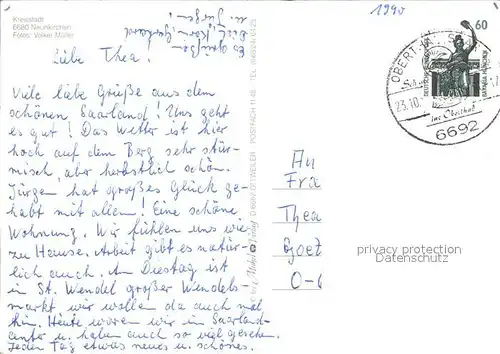 Kreisstadt
6680 Neunkirchen
Fotos: Volker Müller
1990
60
DEUTSCHE BUNDESPOST
BAVARIA MÜNCHEN
OBERT
23.10.
6692
Es grüßen
Dich, Karin, Gerhard
u. Jürgen!
Liebe Thea!
Viele liebe Grüße aus dem
schönen Saarland! Uns geht
es gut! Das Wetter ist hier
hoch auf dem Berg sehr stür-
misch, aber herbstlich schön.
Jürgen hat großes Glück ge-
habt mit allem! Eine schöne
Wohnung. Wir fühlen uns wie
zu Hause. Arbeit gibt es natür-
lich auch. Am Dienstag ist
in St. Wendel großer Wendels-
markt wir wollen da auch mal
hin. Heute waren wir in Saarland-
center u. haben auch so viel gesehen.
Jeden Tag etwas neues u. schönes.
An
Fra
Thea
Goet
O-6
privacy protection
Datenschutz